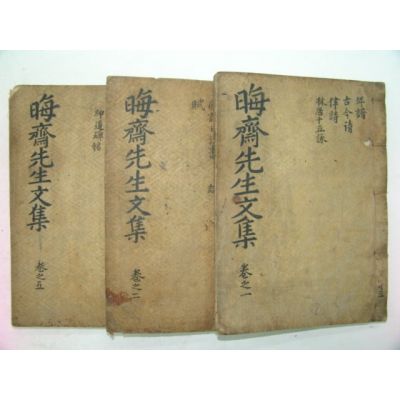 年譜
古今詩
律詩
林居十五詠
晦齋先生文集
卷之一
賦
晦齋先生文集
卷之二
神道碑銘
晦齋先生文集
卷之五